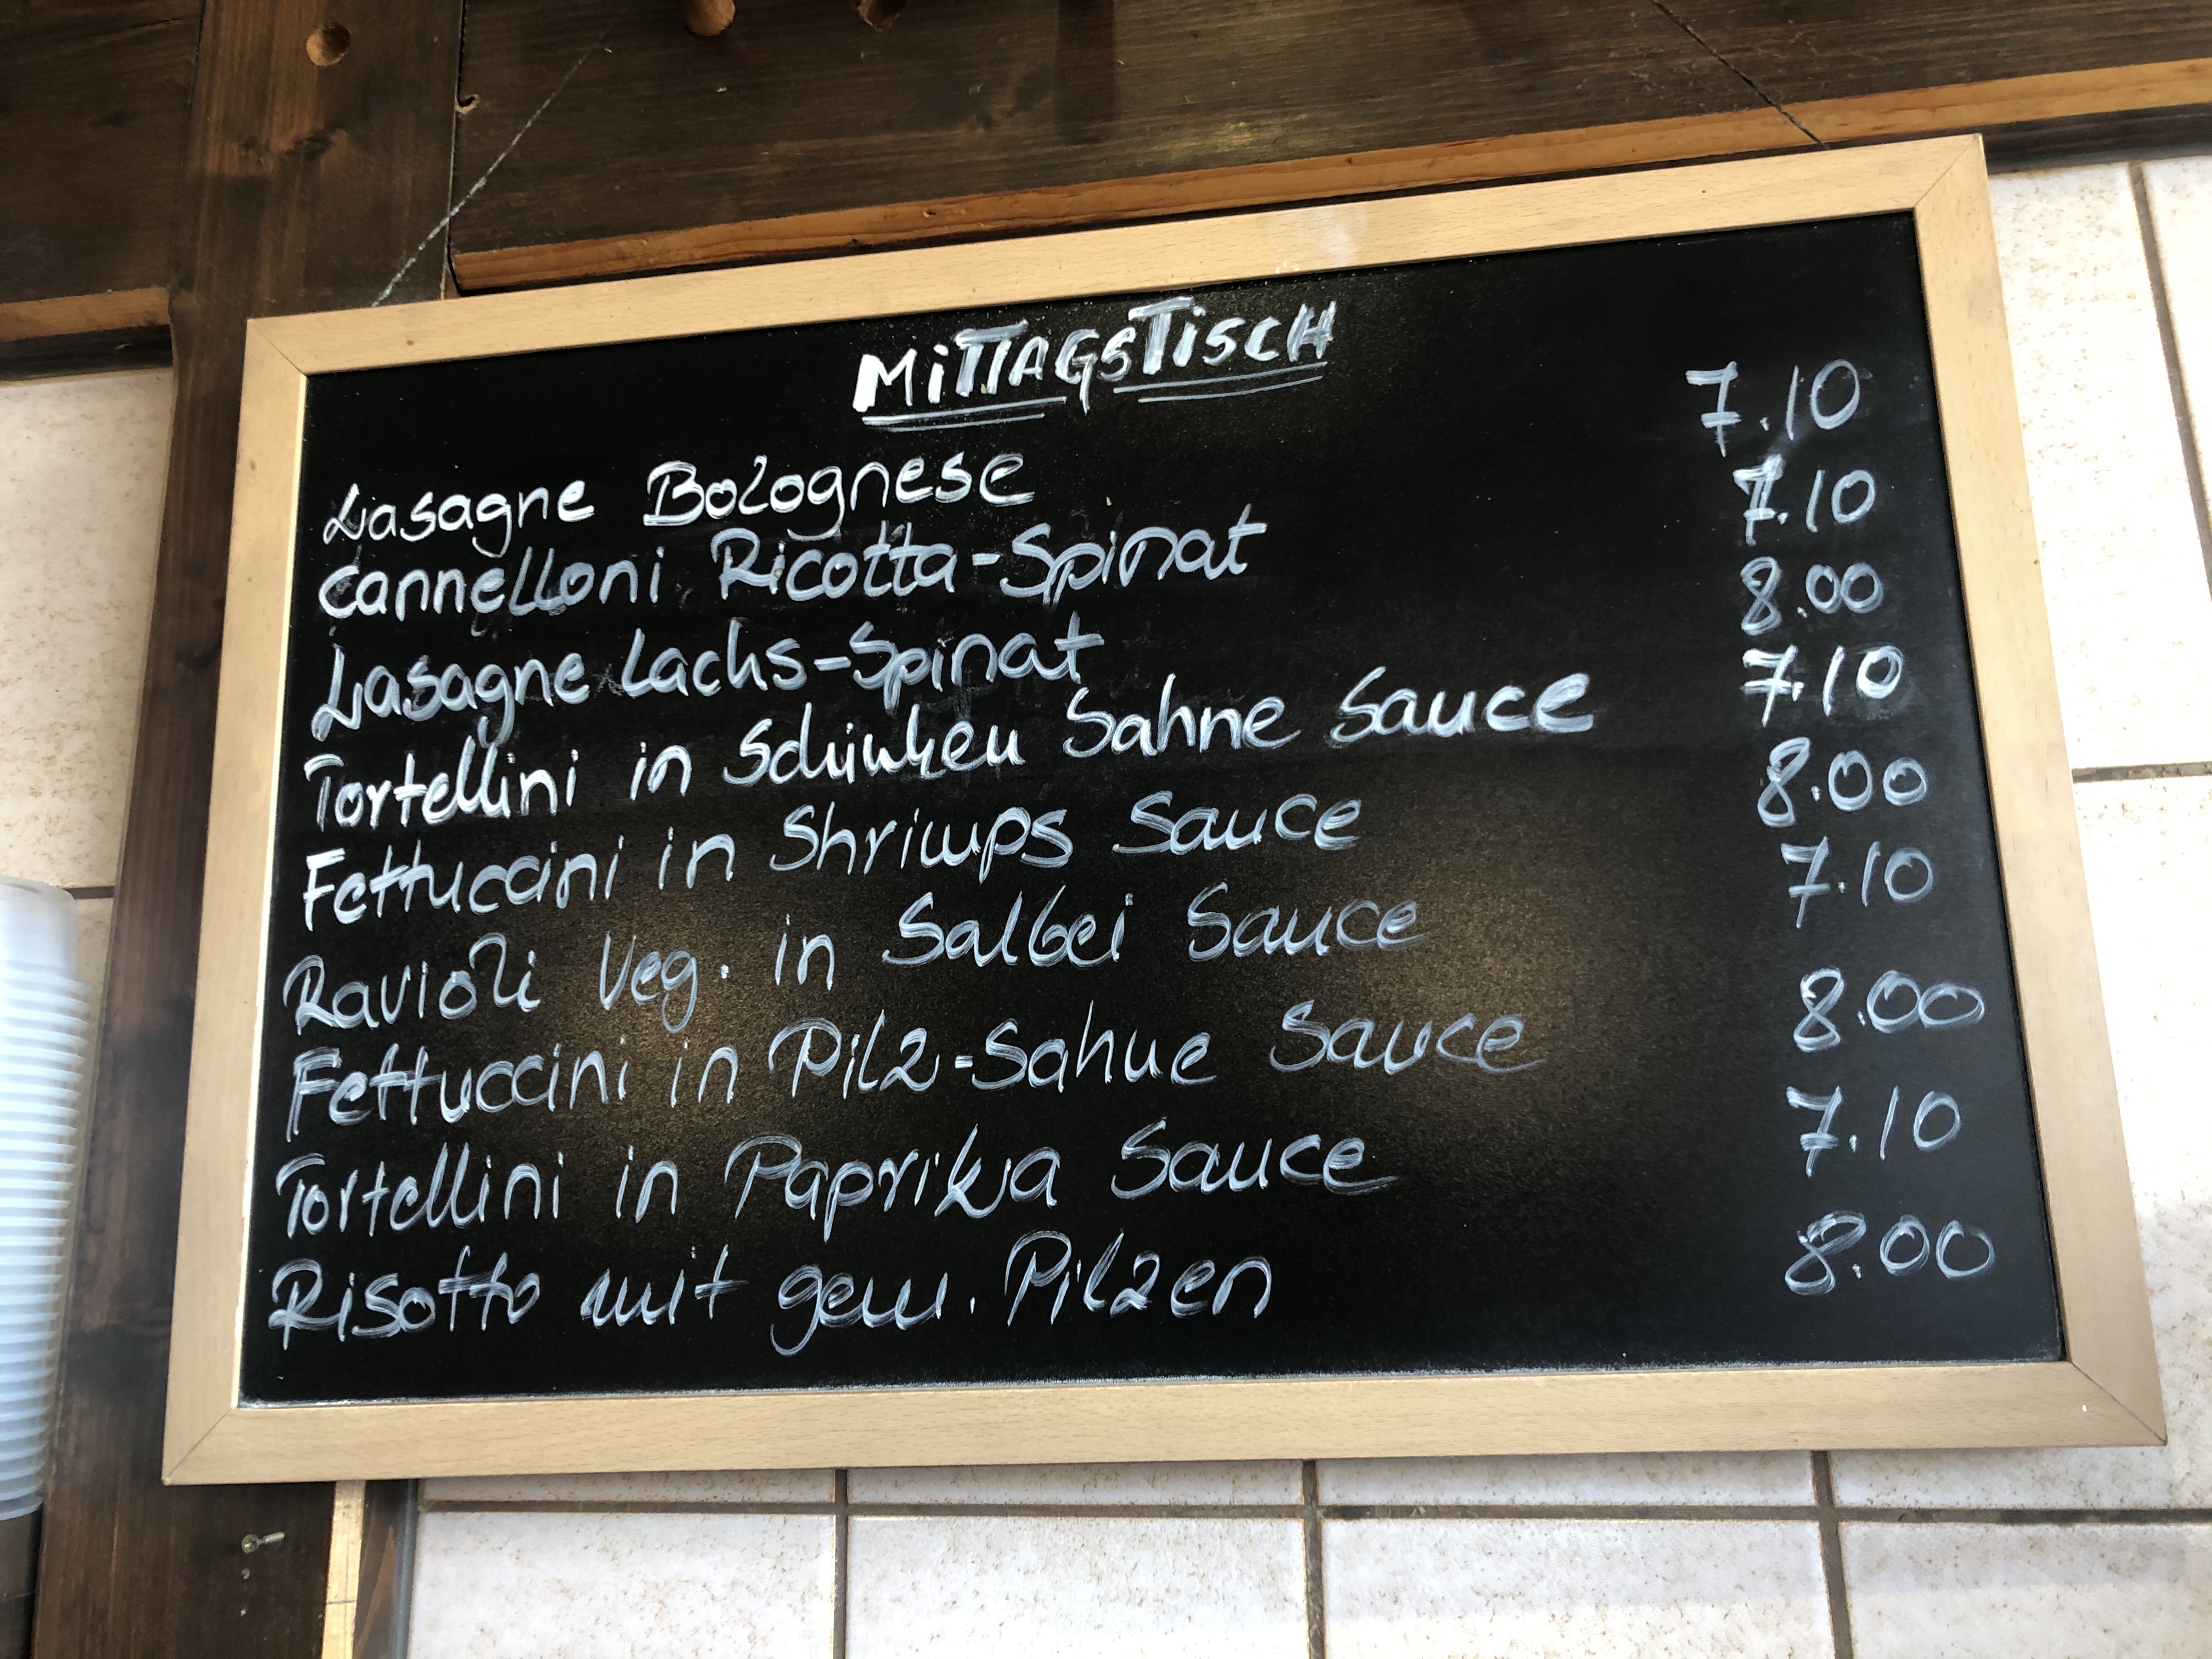 MiTTAGSTiSCH
Lasagne Bolognese 7.10
Cannelloni Ricotta-Spinat 7.10
Lasagne Lachs-Spinat 8.00
Tortellini in Schinken Sahne Sauce 7.10
Fettuccini in Shrimps Sauce 8.00
Ravioli Veg. in Salbei Sauce 7.10
Fettuccini in Pilz-Sahne Sauce 8.00
Tortellini in Paprika Sauce 7.10
Risotto mit gem. Pilzen 8.00